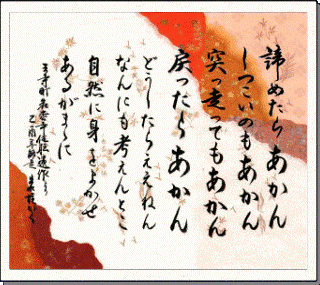 諦めたらあかん
しつこいのもあかん
突っ走ってもあかん
戻ったらあかん
どうしたらええねん
なんにも考えんとこ
自然に身をまかせ
あるがまゝに